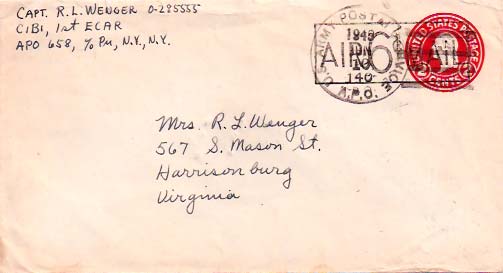 CAPT. R.L. WENGER O-285555
CIBI, 1st ECAR
APO 658, % PM, N.Y., N.Y.
U.S. ARMY POSTAL SERVICE
1943
JUN
10
140
A.P.O.
AIR 6 MAIL
UNITED STATES POSTAGE
2 CENTS 2
Mrs. R. L. Wenger
567 S. Mason St.
Harrisonburg
Virginia